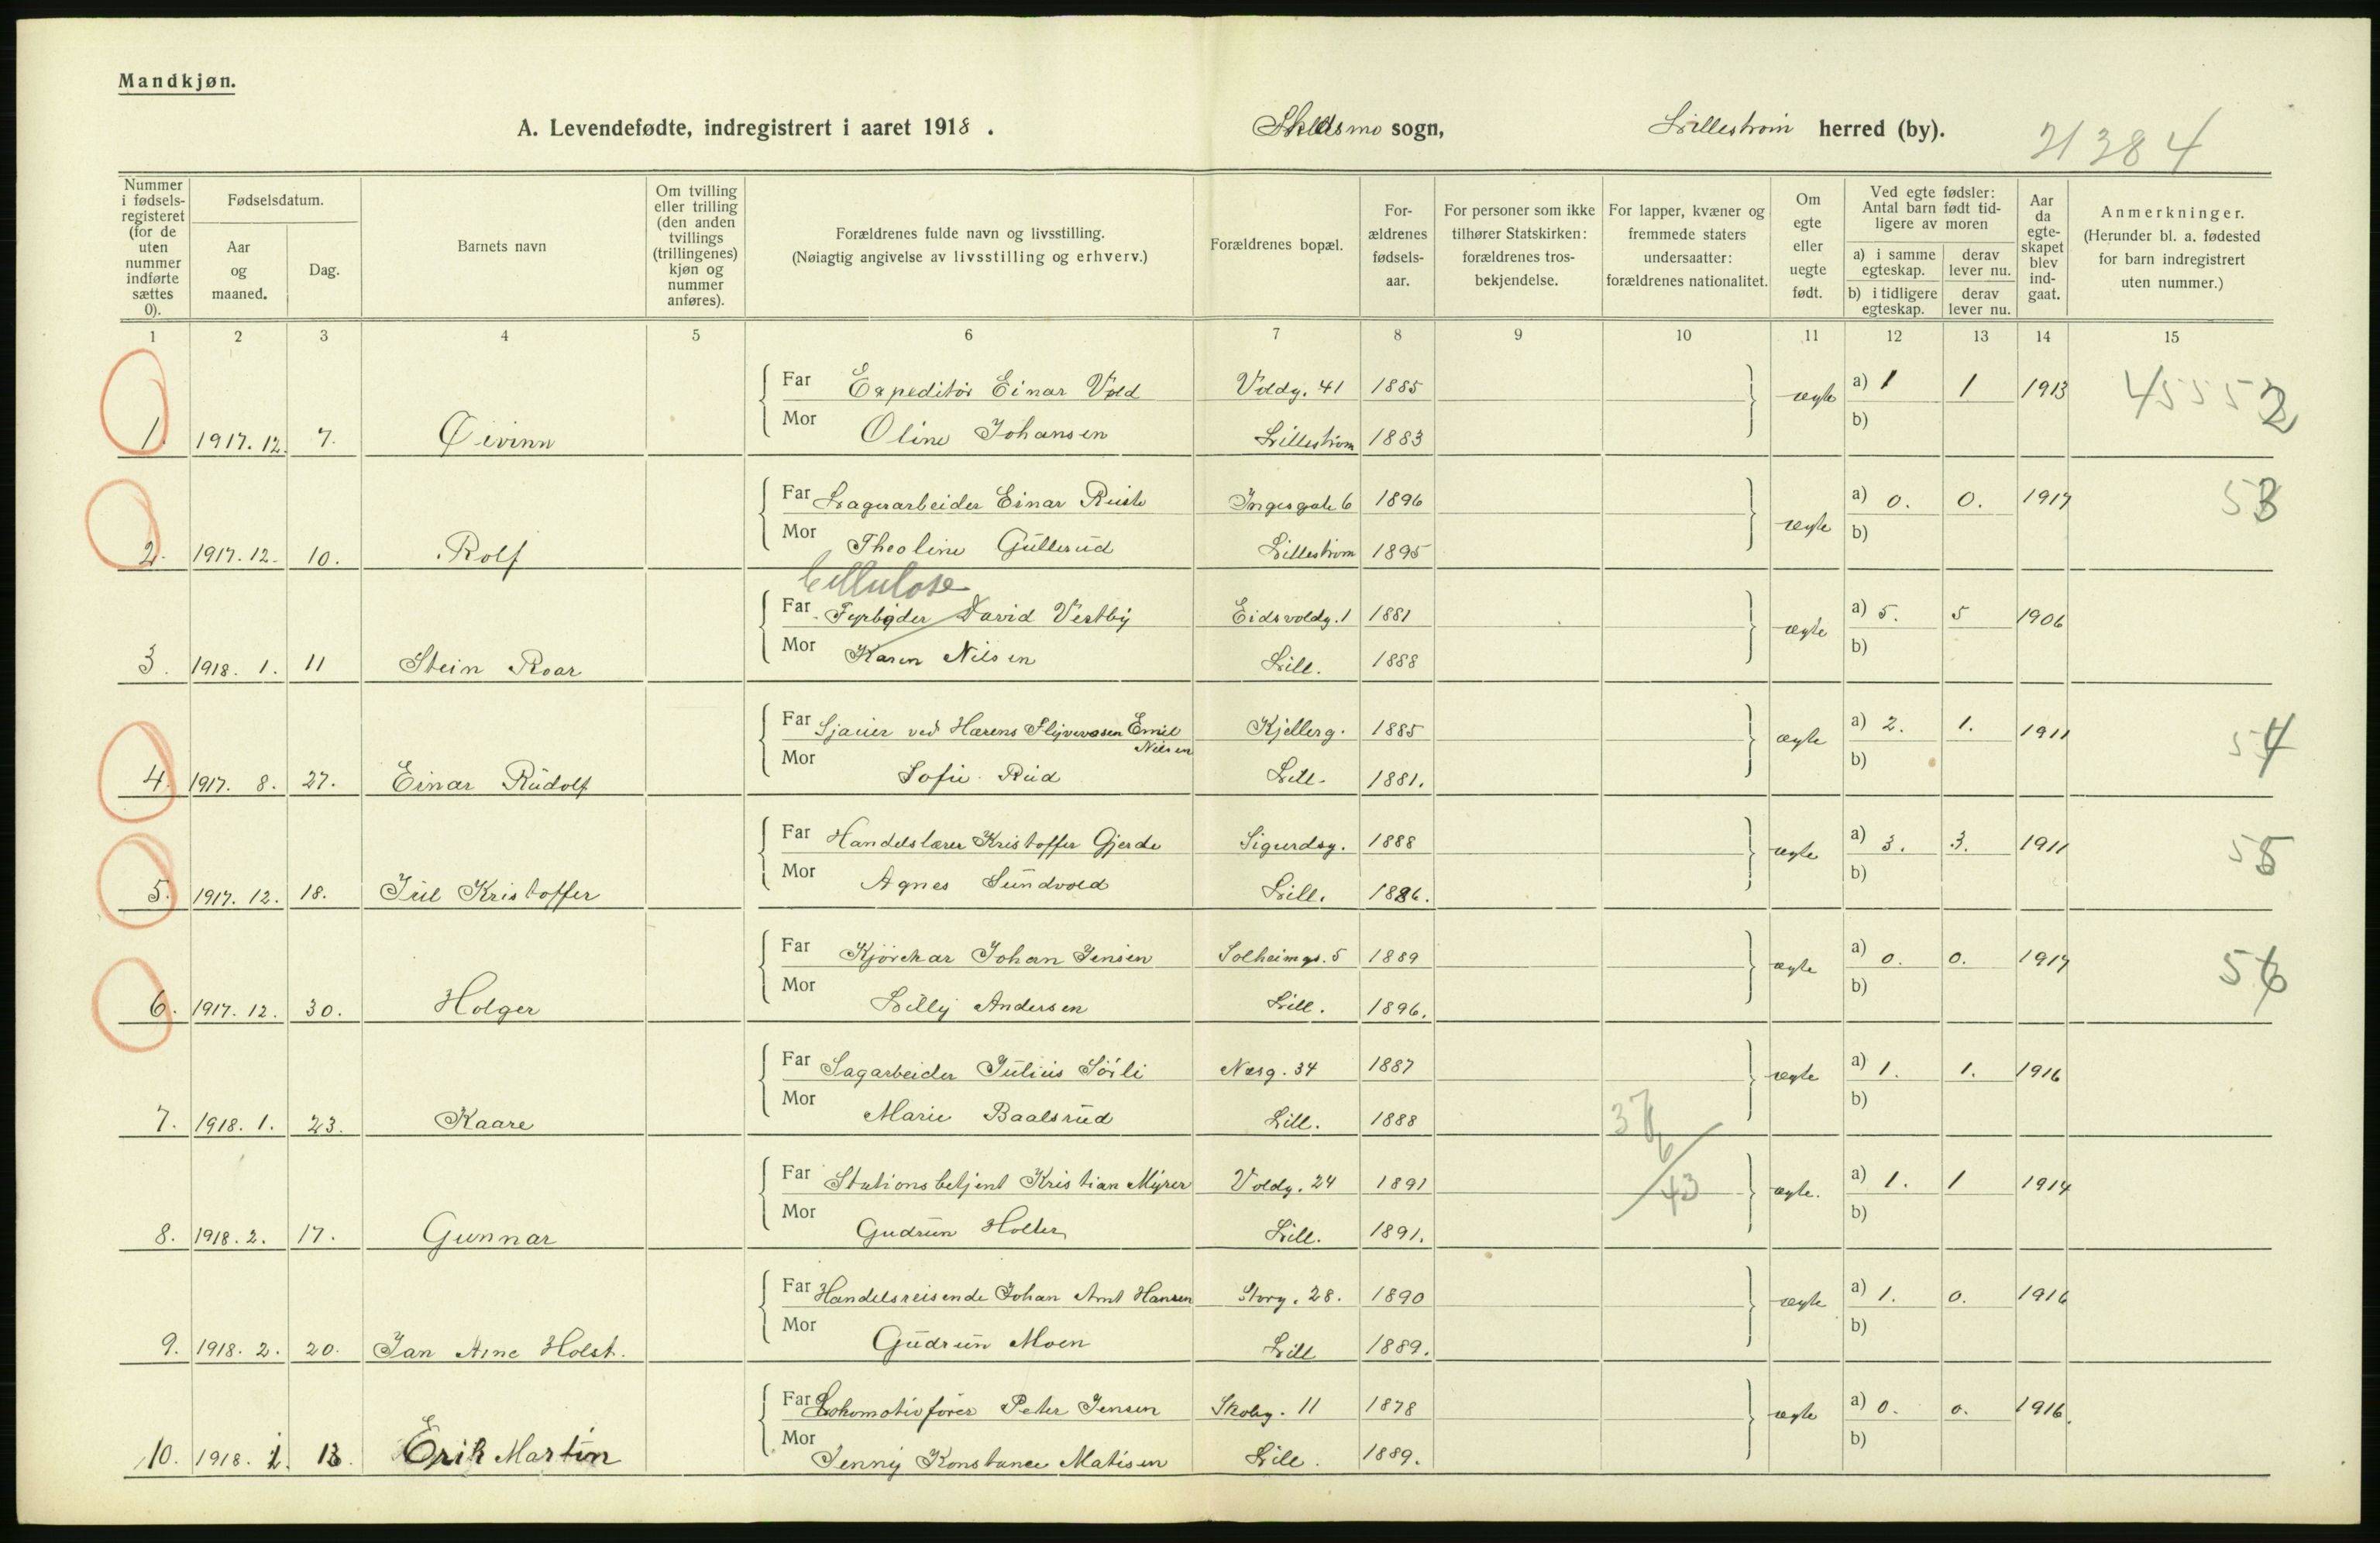 Mandkjøn.
A. Levendefødte, indregistrert i aaret 1918 . Skedsmo sogn, Lillestrøm herred (by). 21384
Nummer i fødselsregisteret (for de uten nummer indførte sættes 0).
Fødselsdatum.
Aar og maaned.
Dag.
Barnets navn
Om tvilling eller trilling (den anden tvillings (trillingenes) kjøn og nummer anføres).
Forældrenes fulde navn og livsstilling.
(Nøiagtig angivelse av livsstilling og erhverv.)
Forældrenes bopæl.
Forældrenes fødselsaar.
For personer som ikke tilhører Statskirken: forældrenes trosbekjendelse.
For lapper, kvæner og fremmede staters undersaatter: forældrenes nationalitet.
Om egte eller uegte født.
Ved egte fødsler: Antal barn født tidligere av moren
a) i samme egteskap.
derav lever nu.
b) i tidligere egteskap.
derav lever nu.
Aar da egteskapet blev indgaat.
Anmerkninger.
(Herunder bl. a. fødested for barn indregistrert uten nummer.)
1 2 3 4 5 6 7 8 9 10 11 12 13 14 15
Far Expeditör Einar Vold Voldg. 41 1885 ægte a) 1 1 1913 45552
1. 1917. 12. 7. Öivinn Mor Oline Johansen Lillestrøm 1883 b)
Far Lagerarbeider Einar Ruste Ingesgate 6 1896 ægte a) 0. 0. 1917 53
2. 1917. 12. 10. Rolf Mor Theoline Gullerud Lillestrøm 1895 b)
Cellulose
Far Fyrbøder David Vestby Eidsvoldg. 1 1881 ægte a) 5. 5 1906
3. 1918. 1. 11 Stein Roar Mor Karen Nilsen Lill. 1888 b)
Far Sjauer ved Hærens Flyvevæsen Emil Nilsen Kjellerg. 1885 ægte a) 2. 1. 1911 54
4. 1917. 8. 27. Einar Rudolf Mor Sofie Rud Lill. 1881. b)
Far Handelslærer Kristoffer Gjerde Sigurdsg. 1888 ægte a) 3. 3. 1911 55
5. 1917. 12. 18. Jul Kristoffer Mor Agnes Sundvold Lill. 1886. b)
Far Kjørekar Johan Jensen Solheimgt. 5 1889 ægte a) 0. 0. 1917 56
6. 1917. 12. 30. Holger Mor Lilly Andersen Lill. 1896. b)
Far Sagarbeider Julius Sörli Næsg. 34 1887 ægte a) 1. 1. 1916
7. 1918. 1. 23. Kaare Mor Marie Baalsrud Lill. 1888 37 b)
6
Far Stationsbetjent Kristian Myrer Voldg. 24 1891 43 ægte. a) 1. 1 1914
8. 1918. 2. 17. Gunnar Mor Gudrun Holter Lill. 1891. b)
Far Handelsreisende Johan Arnt Hansen Storg. 28. 1890 ægte a) 1. 0. 1916
9. 1918. 2. 20. Jan Arne Holst. Mor Gudrun Moen Lill 1889. b)
Far Lokomotivfører Peter Jensen Skoleg. 11 1878 ægte a) 0. 0. 1916.
10. 1918. 1. 13. Erik Martin Mor Jenny Konstance Matisen Lill. 1889. b)